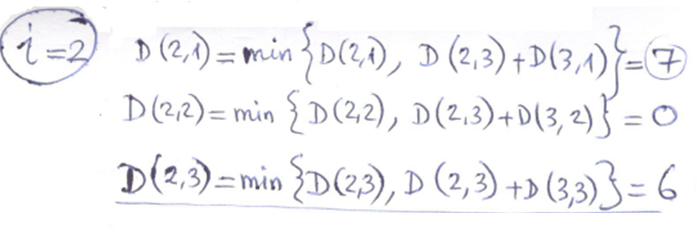 i=2 D(2,1)=min{D(2,1), D(2,3)+D(3,1)}=7
D(2,2)=min{D(2,2), D(2,3)+D(3,2)}=0
D(2,3)=min{D(2,3), D(2,3)+D(3,3)}=6